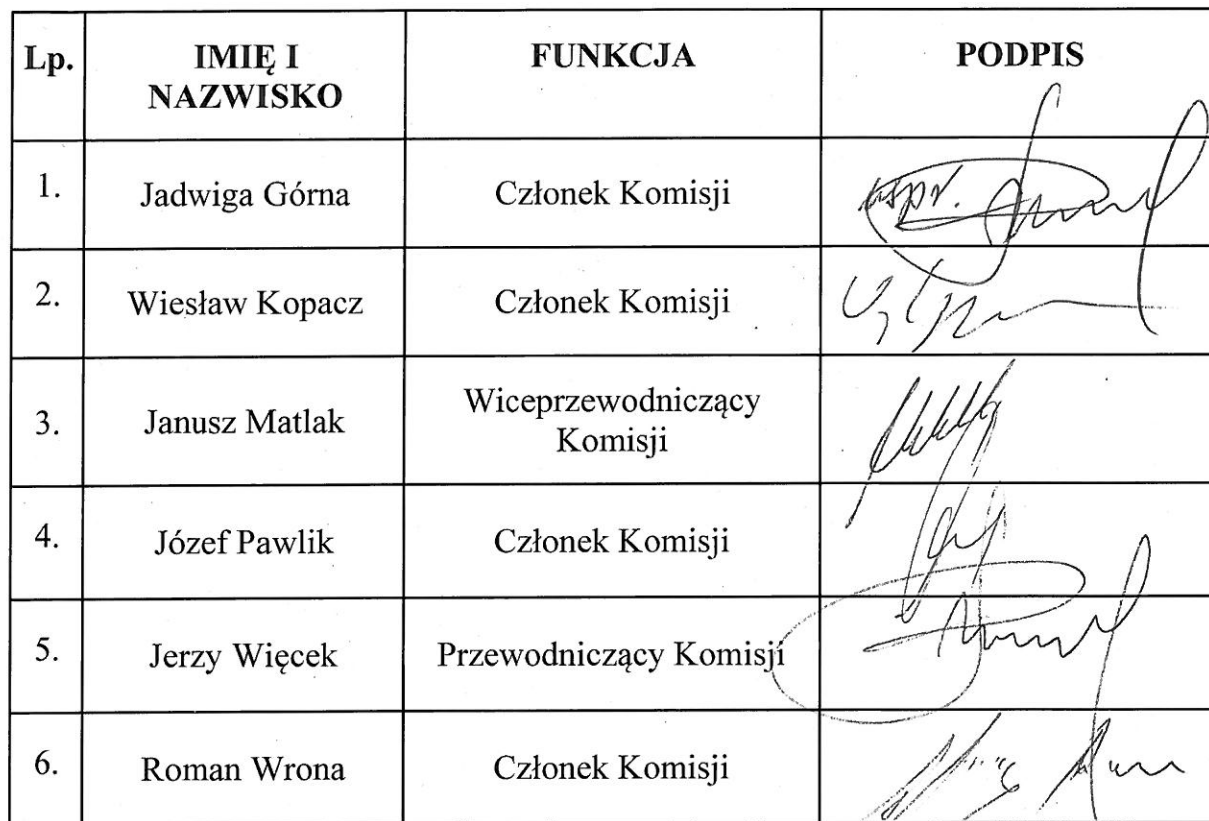 Lp. IMIĘ I NAZWISKO FUNKCJA PODPIS
1. Jadwiga Górna Członek Komisji
2. Wiesław Kopacz Członek Komisji
3. Janusz Matlak Wiceprzewodniczący Komisji
4. Józef Pawlik Członek Komisji
5. Jerzy Więcek Przewodniczący Komisji
6. Roman Wrona Członek Komisji